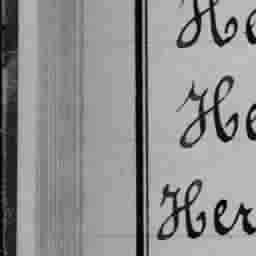 He
He
Her